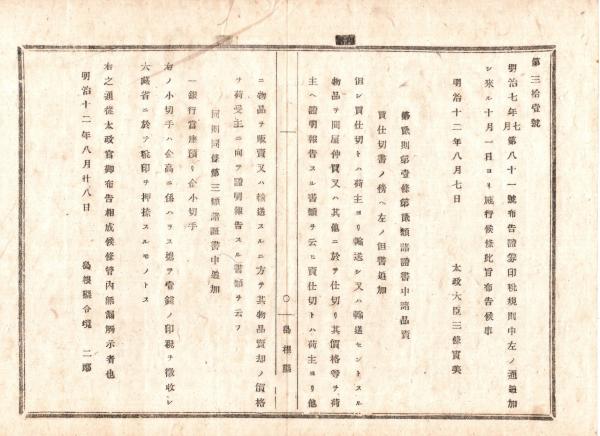 第三拾壹號
明治七年七月第八十一號布告證券印稅規則中左ノ通追加
シ來ル十月一日ヨリ施行候條此旨布告候事
明治十二年八月七日
太政大臣三條實美
第貳則第壹條第貳類諸證書中諸品賣
買仕切書ノ傍ヘ左ノ但書追加
但シ買仕切トハ荷主ヨリ輸送シ又ハ輸送セントスル
物品ヲ問屋仲買又ハ其他ニ於ヲ仕切リ其價格等ヲ荷
主ヘ證明報告スル書類ヲ云ヒ賣仕切トハ荷主ヨリ他
○島根縣
ニ物品ヲ販賣又ハ輸送スルニ方ヲ其物品賣却ノ價格
ヲ荷受主ニ向ヲ證明報告スル書類ヲ云フ
同則同條第三類諸証書中追加
一銀行當座預リ金小切手
右ノ小切手ハ金高ニ係ハラス總ヲ壹錢ノ印稅ヲ徵收シ
大藏省ニ於ヲ稅印ヲ押捺スルモノトス
右之通從太政官御布告相成候條管內無漏觸示者也
明治十二年八月廿八日
島根縣令境 二郎